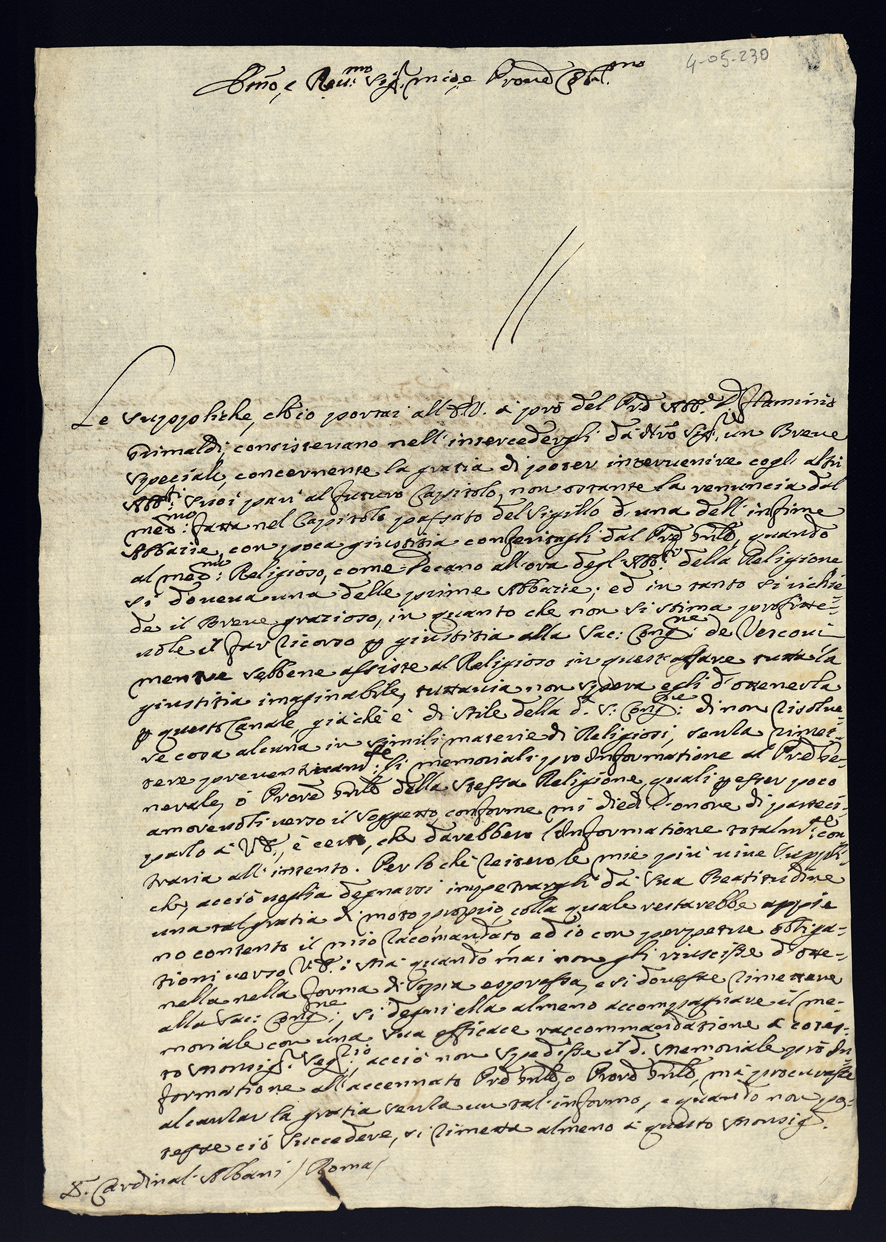 4-05-230
Em̃o, e Reu.mo Sig.r mio, e Prone Col.mo
Le suppliche, ch'io portai all'E.V. à prò del Prē Abb.e D. Flaminio
Grimaldi, consisteuano nell'intercedergli da Nr̃o Sig.r un Breue
speciale, concernente la gratia di poter interuenire cogl'altri
Abb.ti suoi pari al futuro Capitolo, non ostante la renuncia dal
med.mo: fatta nel Capitolo passato del Sigillo d'una dell'infime
Abbazie, con poca giustitia conferitagli dal Prē Gñle, quando
al med.mo: Religioso, come Decano allora degl'Abb.ti della Religione
si doueua una delle prime Abbazie; ed in tanto si richie=
de il Breue grazioso, in quanto che non si stima profitte=
uole il far ricorso p giustitia alla Sac: Cong.ne: de Vescoui
mentre sebbene assiste al Religioso in quest'affare tutta la
giustitia imaginabile, tuttauia non spera egli d'ottenerla
p questo Canale, già che è di stile della d. S: Cong.ne: di non risolue=
re cosa alcuna in simili materie di Religiosi, senza rimet=
tere preuentiuam.te li memoriali pro Informatione al Prē Ge=
nerale, ò Proc.re Gñle della stessa Religione, quali p esser poco
amoreuoli verso il soggetto conforme mi diedi l'onore di parteci=
parlo à V.E., è certo, che darebbero l'Informatione totalm.te con
traria all'intento. Per lo che reitero le mie più viue suppli=
che, acciò uoglia degnarsi impetrargli dà Sua Beatitudine
una tal gratia di moto proprio, colla quale restarebbe appie
no contento il mio racomandato ed io con perpetue obliga=
tioni uerso V.E.: Mà quando mai non gli riuscisse d'otte=
nella nella forma di sopra espressa, e si douesse rimettere
alla Sac: Cong.ne:, si degni ella almeno accompagnare il me=
moriale con una sua efficace raccommandatione à cotes=
to Monsig.r Seg.rio, acciò non spedisse il d. Memoriale prò In
formatione all'accennato Prē Gñle, o Proc.re Gñle, mà procurasse
al cantar la gratia senza un tal informo, e quando non po=
tesse ciò succedere, si rimetta almeno à questo Monsig.r
S.r Cardinal Albani / Roma /